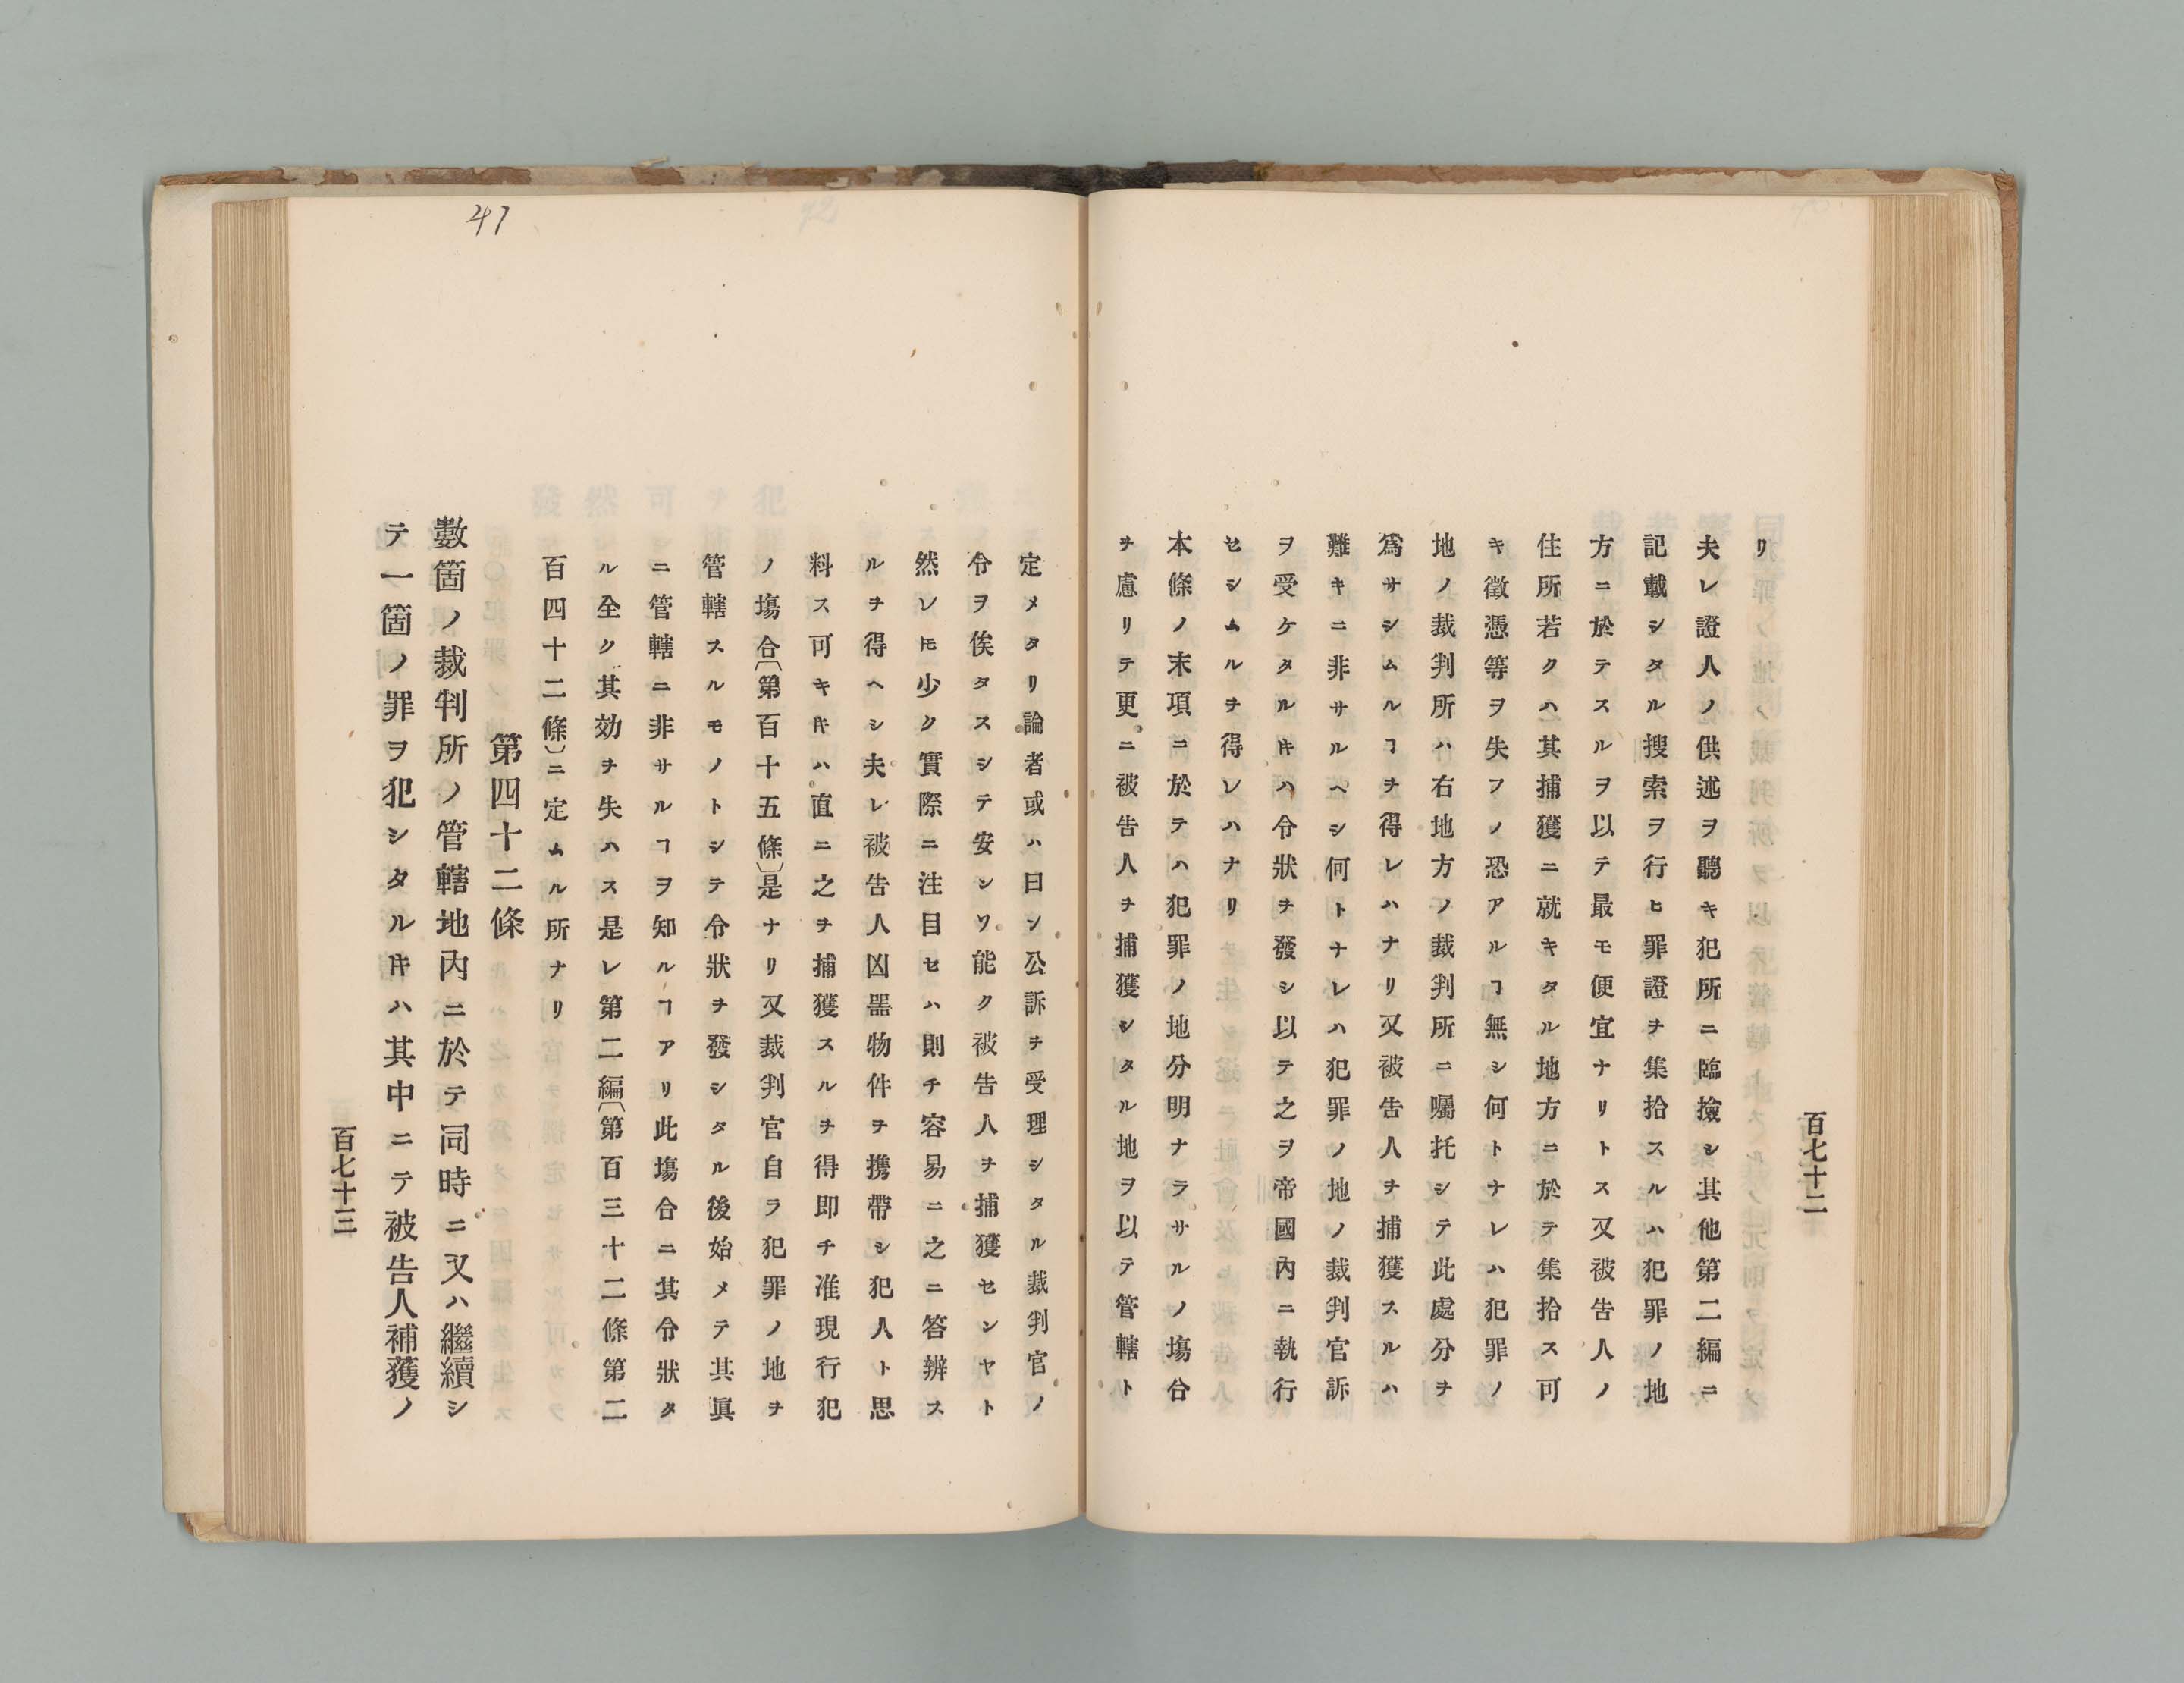 百七十二
リ
夫レ證人ノ供述ヲ聽キ犯所ニ臨撿シ其他第二編ニ
記載シタル搜索ヲ行ヒ罪證ヲ集拾スルハ犯罪ノ地
方ニ於テスルヲ以テ最モ便宜ナリトス又被告人ノ
住所若クハ其捕獲ニ就キタル地方ニ於テ集拾ス可
キ徵憑等ヲ失フノ恐アルヿ無シ何トナレハ犯罪ノ
地ノ裁判所ハ右地方ノ裁判所ニ囑托シテ此處分ヲ
爲サシムルヿヲ得レハナリ又被告人ヲ捕獲スルハ
難キニ非サルヘシ何トナレハ犯罪ノ地ノ裁判官訴
ヲ受ケタルキハ令狀ヲ發シ以テ之ヲ帝國內ニ執行
セシムルヲ得レハナリ
本條ノ末項ニ於テハ犯罪ノ地分明ナラサルノ塲合
ヲ慮リテ更ニ被告人ヲ捕獲シタル地ヲ以テ管轄ト
定メタリ論者或ハ曰ン公訴ヲ受理シタル裁判官ノ
令ヲ俟タスシテ安ンソ能ク被告人ヲ捕獲センヤト
然レ𪜈少ク實際ニ注目セハ則チ容易ニ之ニ答辨ス
ルヲ得ヘシ夫レ被告人凶噐物件ヲ携帶シ犯人ト思
料ス可キキハ直ニ之ヲ捕獲スルヲ得即チ准現行犯
ノ塲合〔第百十五條〕是ナリ又裁判官自ラ犯罪ノ地ヲ
管轄スルモノトシテ令狀ヲ發シタル後始メテ其眞
ニ管轄ニ非サルヿヲ知ルヿアリ此塲合ニ其令狀タ
ル全ク其効ヲ失ハス是レ第二編〔第百三十二條第二
百四十二條〕ニ定ムル所ナリ
第四十二條
數箇ノ裁判所ノ管轄地內ニ於テ同時ニ又ハ繼續シ
テ一箇ノ罪ヲ犯シタルキハ其中ニテ被告人補獲ノ
百七十三
41